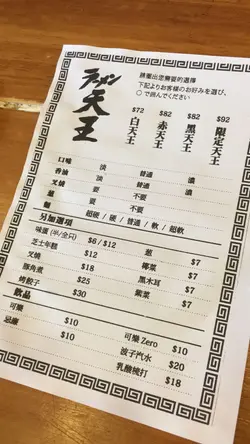 ラーメン
天王
請圈出您需要的選擇
下記よりお客様のお好みを選び、
○で囲んでください。
$72 白天王
$82 赤天王
$82 黑天王
$92 限定天王
口味 淡 普通 濃
香油 淡 普通 濃
叉燒 要 不要
蔥 要 不要
麵 超硬 / 硬 / 普通 / 軟 / 超軟
另加選項
味蛋 (半/全只) $6 / $12 蔥 $7
芝士年糕 $12 椰菜 $7
叉燒 $18 黑木耳 $7
豚角煮 $25 紫菜 $7
烤餃子 $30
飲品
可樂 $10 可樂 Zero $10
忌廉 $10 波子汽水 $20
乳酸梳打 $18